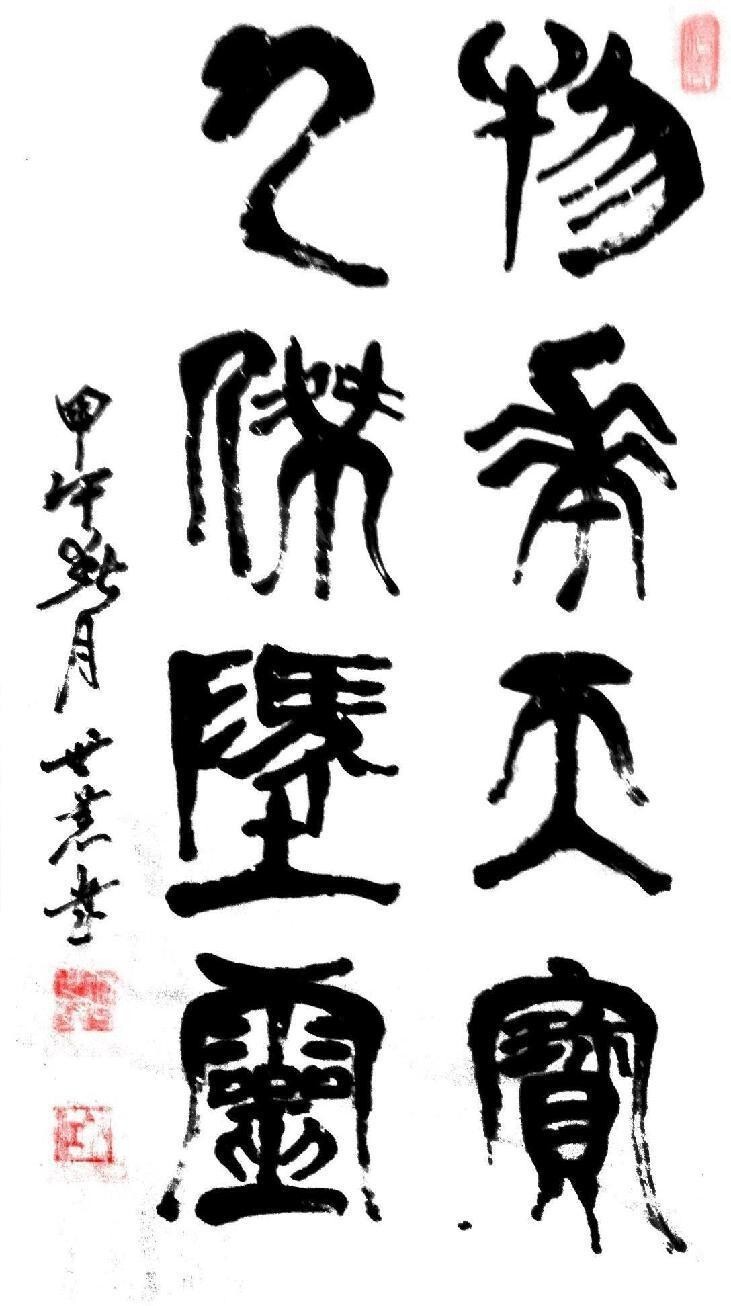 物華天寶
人傑地靈
甲午秋月世書